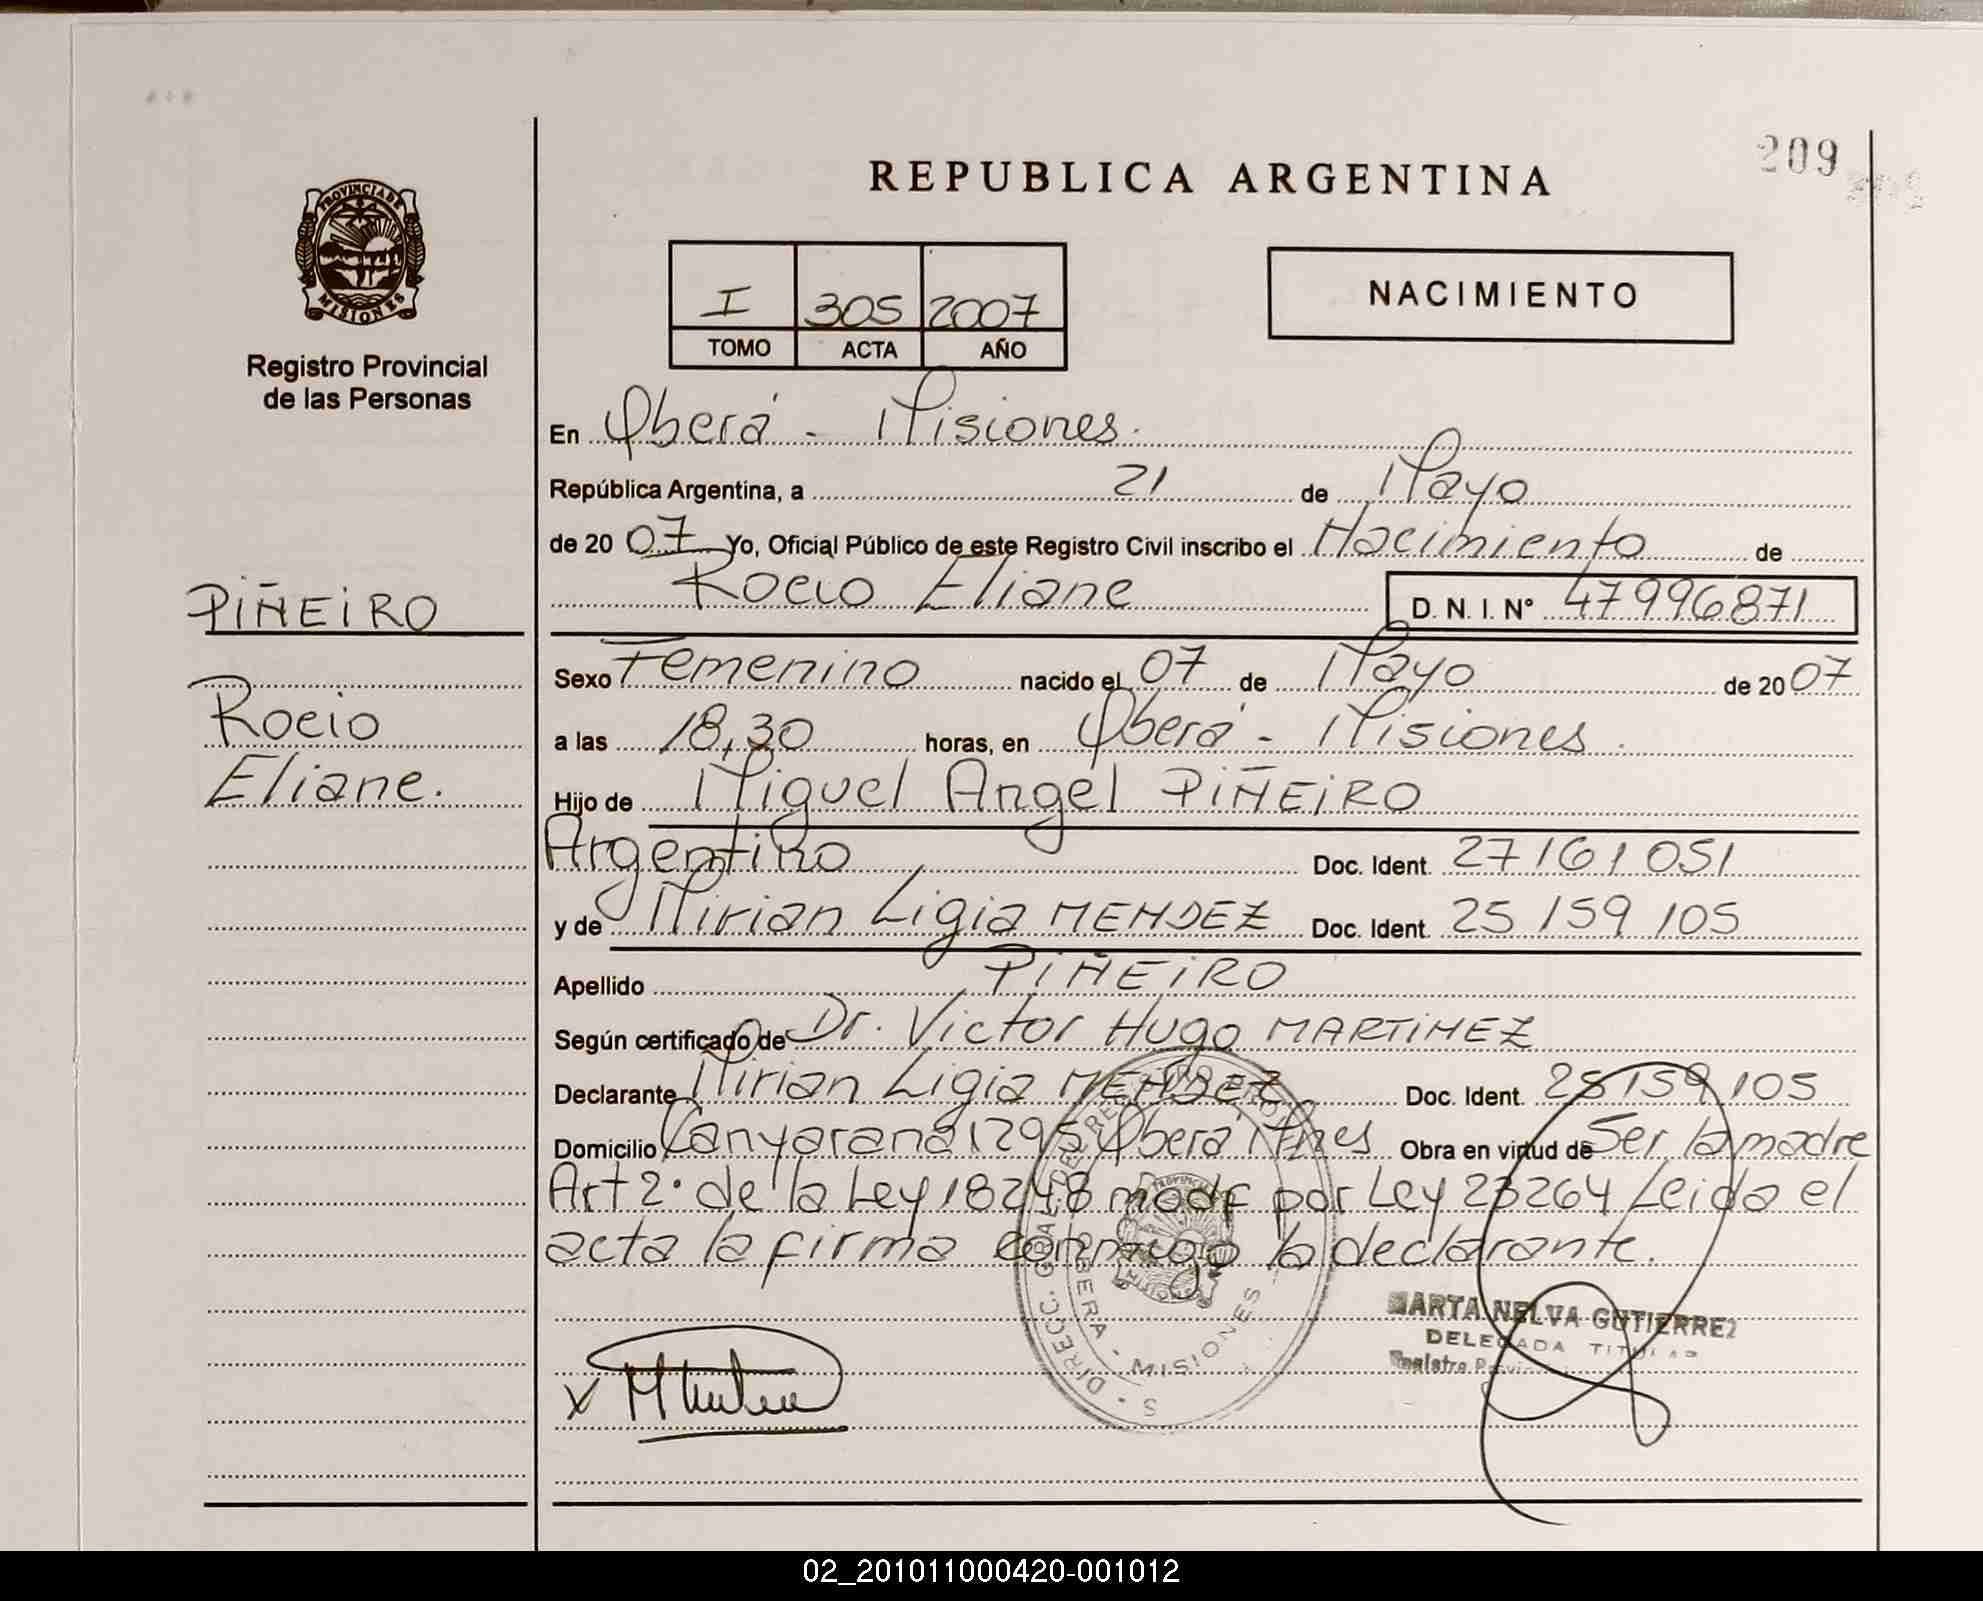 209
REPUBLICA ARGENTINA
PROVINCIA DE
MISIONES
Registro Provincial
de las Personas
I 305 2007
TOMO ACTA AÑO
NACIMIENTO
En Oberá - Misiones.
República Argentina, a 21 de Mayo
de 20 07 Yo, Oficial Público de este Registro Civil inscribo el Nacimiento de
Rocio Eliane D. N. I. Nº 47996871
PIÑEIRO
Rocio
Eliane.
Sexo Femenino nacido el 07 de Mayo de 20 07
a las 18,30 horas, en Oberá - Misiones.
Hijo de Miguel Angel PIÑEIRO
Argentino Doc. Ident. 27161051
y de Mirian Ligia MENDEZ Doc. Ident. 25159105
Apellido PIÑEIRO
Según certificado de Dr. Victor Hugo MARTINEZ
Declarante Mirian Ligia MENDEZ Doc. Ident. 25159105
Domicilio 1295 Oberá Mnes Obra en virtud de Ser la madre
Art 2º de la Ley 18248 modf por Ley 23264 Leida el
acta la firma conmigo la declarante.
MARTA NELVA GUTIERREZ
DELEGADA TITULAR
Registro
DIRECC. GRAL. DEL REGISTRO
OBERA - MISIONES
PROVINCIA
MISIONES
X
02_201011000420-001012